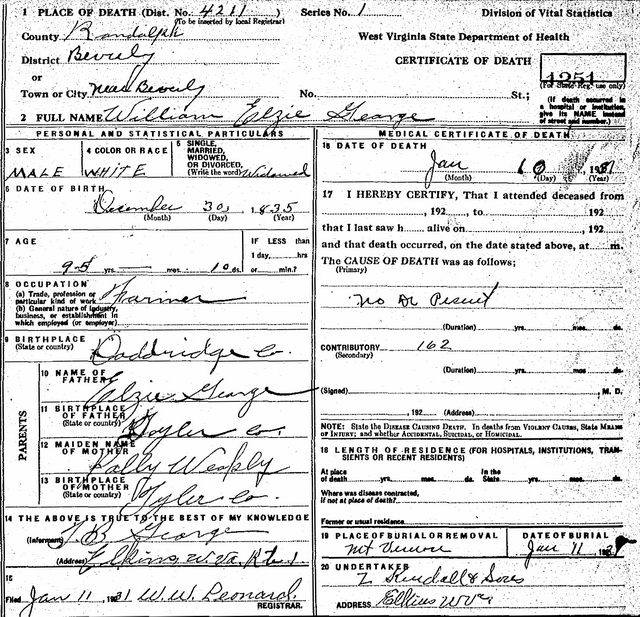 1 PLACE OF DEATH (Dist. No. 4211 Series No. 1 Division of Vital Statistics
(To be inserted by local Registrar)
County Randolph West Virginia State Department of Health
District Beverly CERTIFICATE OF DEATH
or 4251
Town or City Near Beverly No. St.; (For State Reg. use only)
(If death occurred in a hospital or institution, give its NAME instead of street and number.)
2 FULL NAME William Elzie George
PERSONAL AND STATISTICAL PARTICULARS
3 SEX
MALE
4 COLOR OR RACE
WHITE
5 SINGLE,
MARRIED,
WIDOWED,
OR DIVORCED,
(Write the word) Widowed
6 DATE OF BIRTH
December 30, 1835
(Month) (Day) (Year)
7 AGE
95 yrs. mos. 10 ds.
IF LESS than
1 day, hrs
or min.?
8 OCCUPATION
(a) Trade, profession or
particular kind of work Farmer
(b) General nature of industry,
business, or establishment in
which employed (or employer)
9 BIRTHPLACE
(State or country) Doddridge Co.
PARENTS
10 NAME OF
FATHER Elzie George
11 BIRTHPLACE
OF FATHER
(State or country) Tyler Co.
12 MAIDEN NAME
OF MOTHER
13 BIRTHPLACE
OF MOTHER
(State or country) Tyler Co
14 THE ABOVE IS TRUE TO THE BEST OF MY KNOWLEDGE
(Informant) George
(Address) Elkins, W. Va.
15
Filed Jan 11, 1931 W. W. Leonard
REGISTRAR.
MEDICAL CERTIFICATE OF DEATH
16 DATE OF DEATH
Jan 10 1931
(Month) (Day) (Year)
17 I HEREBY CERTIFY, That I attended deceased from
, 192 , to , 192
that I last saw h alive on , 192
and that death occurred, on the date stated above, at m.
The CAUSE OF DEATH was as follows;
(Primary)
No Dr Present
(Duration) yrs. mos. ds.
CONTRIBUTORY 162
(Secondary)
(Duration) yrs. mos. ds.
(Signed) , M. D.
, 192 (Address)
NOTE: State the DISEASE CAUSING DEATH. In deaths from VIOLENT CAUSES, State MEANS
OF INJURY; and whether ACCIDENTAL, SUICIDAL, or HOMICIDAL.
18 LENGTH OF RESIDENCE (FOR HOSPITALS, INSTITUTIONS, TRAN-
SIENTS OR RECENT RESIDENTS)
At place In the
of death yrs. mos. ds. State yrs. mos. ds.
Where was disease contracted,
if not at place of death?
Former or usual residence
19 PLACE OF BURIAL OR REMOVAL DATE OF BURIAL
Mt Vernon Jan 11 1931
20 UNDERTAKER
Kendall & Sons
ADDRESS Elkins W Va